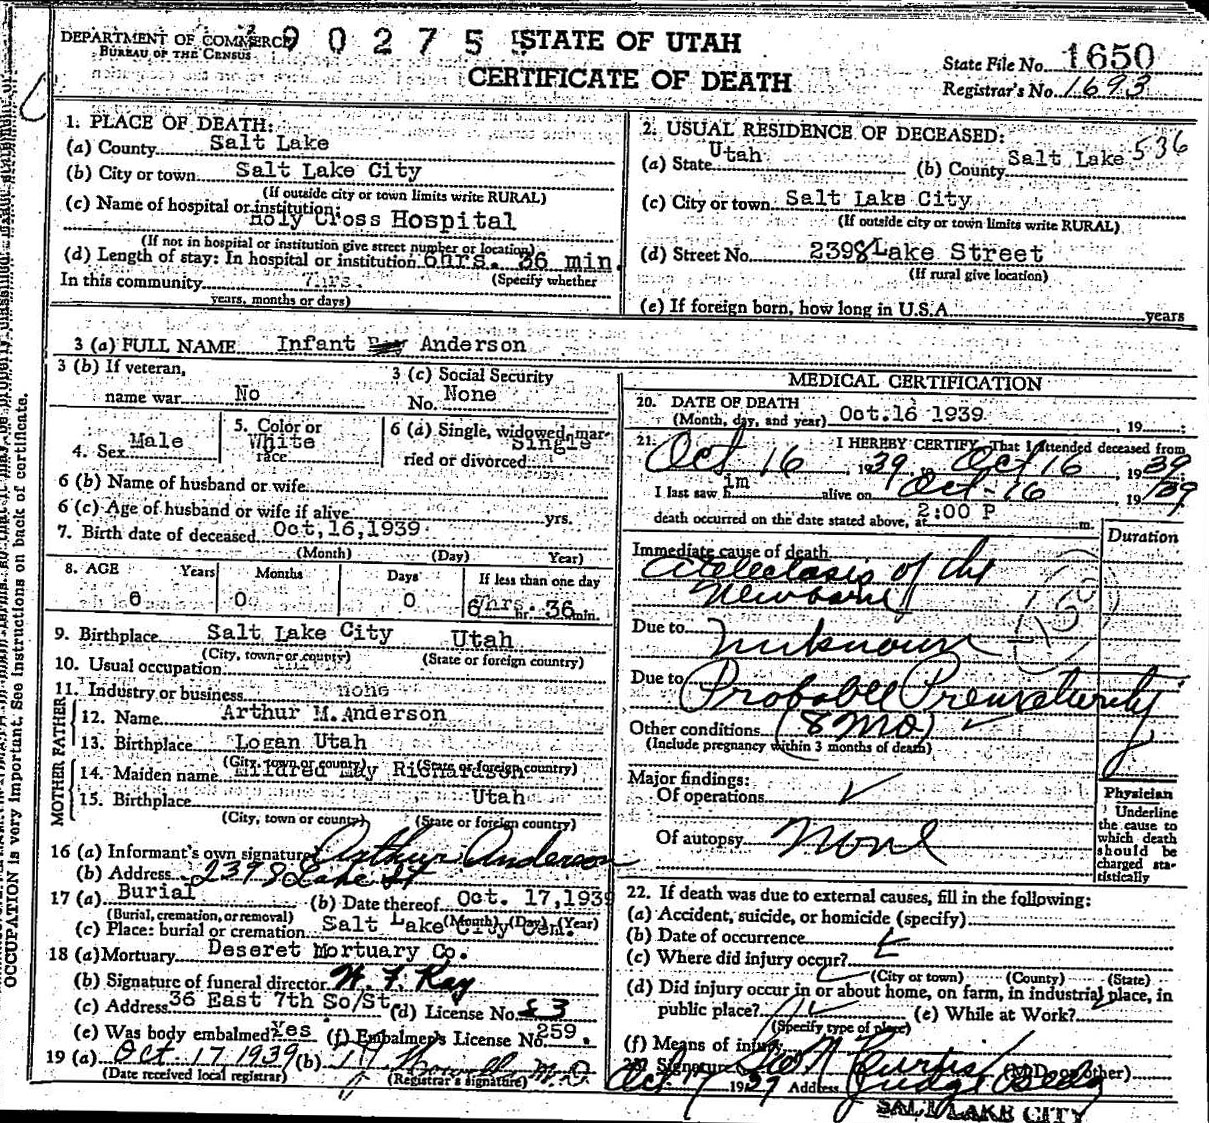 DEPARTMENT OF COMMERCE 9 0 2 7 5 STATE OF UTAH
BUREAU OF THE CENSUS
CERTIFICATE OF DEATH
State File No. 1650
Registrar's No. 1693
1. PLACE OF DEATH:
(a) County Salt Lake
(b) City or town Salt Lake City
(If outside city or town limits write RURAL)
(c) Name of hospital or institution:
Holy Cross Hospital
(If not in hospital or institution give street number or location)
(d) Length of stay: In hospital or institution 6hrs. 36 min.
(Specify whether
In this community 7hrs.
years, months or days)
2. USUAL RESIDENCE OF DECEASED:
536
(a) State Utah (b) County Salt Lake
(c) City or town Salt Lake City
(If outside city or town limits write RURAL)
(d) Street No. 2398 Lake Street
(If rural give location)
(e) If foreign born, how long in U.S.A. years
3 (a) FULL NAME Infant Boy Anderson
3 (b) If veteran,
name war No
3 (c) Social Security
No. None
4. Sex Male
5. Color or
race White
6 (a) Single, widowed, mar-
ried or divorced Single
6 (b) Name of husband or wife
6 (c) Age of husband or wife if alive yrs.
7. Birth date of deceased Oct,16,1939
(Month) (Day) Year)
8. AGE Years Months Days If less than one day
0 0 0 6 hrs. hr. 36 min.
9. Birthplace Salt Lake City Utah
(City, town, or county) (State or foreign country)
10. Usual occupation
11. Industry or business none
FATHER
12. Name Arthur M. Anderson
13. Birthplace Logan Utah
(City, town or county) (State or foreign country)
MOTHER
14. Maiden name Mildred May Richardson
15. Birthplace Utah
(City, town or county) (State or foreign country)
16 (a) Informant's own signature Arthur Anderson
(b) Address 2398 Lake St
17 (a) Burial (b) Date thereof Oct. 17,1939
(Burial, cremation, or removal) (Month) (Day) (Year)
(c) Place: burial or cremation Salt Lake City Cem.
18 (a) Mortuary Deseret Mortuary Co.
(b) Signature of funeral director W. F. Kay
(c) Address 36 East 7th So/St (d) License No. 3
(e) Was body embalmed? Yes (f) Embalmer's License No. 259.
19 (a) Oct 17 1939 (b) M.D.
(Date received local registrar) (Registrar's signature)
MEDICAL CERTIFICATION
20. DATE OF DEATH
(Month, day, and year) Oct.16 1939 , 19 :
21. I HEREBY CERTIFY, That I attended deceased from
Oct 16 , 1939 to Oct 16 , 1939
I last saw h im alive on Oct-16 1939
death occurred on the date stated above, at 2:00 P m.
Duration
Immediate cause of death
Atelectasis of the
Newborn
Due to Unknown
Due to Probable Prematurity
Other conditions (8 mo)
(Include pregnancy within 3 months of death)
Major findings:
Of operations
Of autopsy None
Physician
Underline
the cause to
which death
should be
charged sta-
tistically
22. If death was due to external causes, fill in the following:
(a) Accident, suicide, or homicide (specify)
(b) Date of occurrence
(c) Where did injury occur?
(City or town) (County) (State)
(d) Did injury occur in or about home, on farm, in industrial place, in
public place? (e) While at Work?
(Specify type of place)
(f) Means of injury
23. Signature Curtis (M.D. or other)
Oct 17 1939 Address Judge Bldg
SALT LAKE CITY
OCCUPATION is very important. See instructions on back of certificate.